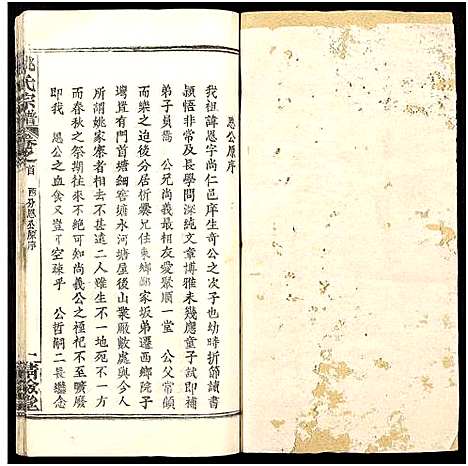 愚公原序
我祖諱恩字尚仁邑庠生奇公之次子也幼時折節讀書
不遺餘力及長學問深純文章博雅未幾歲童子試即補
弟子員焉 公兄尚義最相友愛聚順一堂 公父常傾
而樂之迫後分居析爨兄住東鄉鄒家坂弟遷西鄉院子
壪置有門首塘細窖塘水河塘屋後山業厰數處與今人
所謂姚家寨者相去不甚遠二人雖生不一地死不一方
而春秋之祭期往來不絕可知尚義公之祀亦不至曠廢
即我 愚公之血食又豈可空疎乎 公哲嗣二長繼念
姚氏宗譜
卷之首
西分恩公原序
一